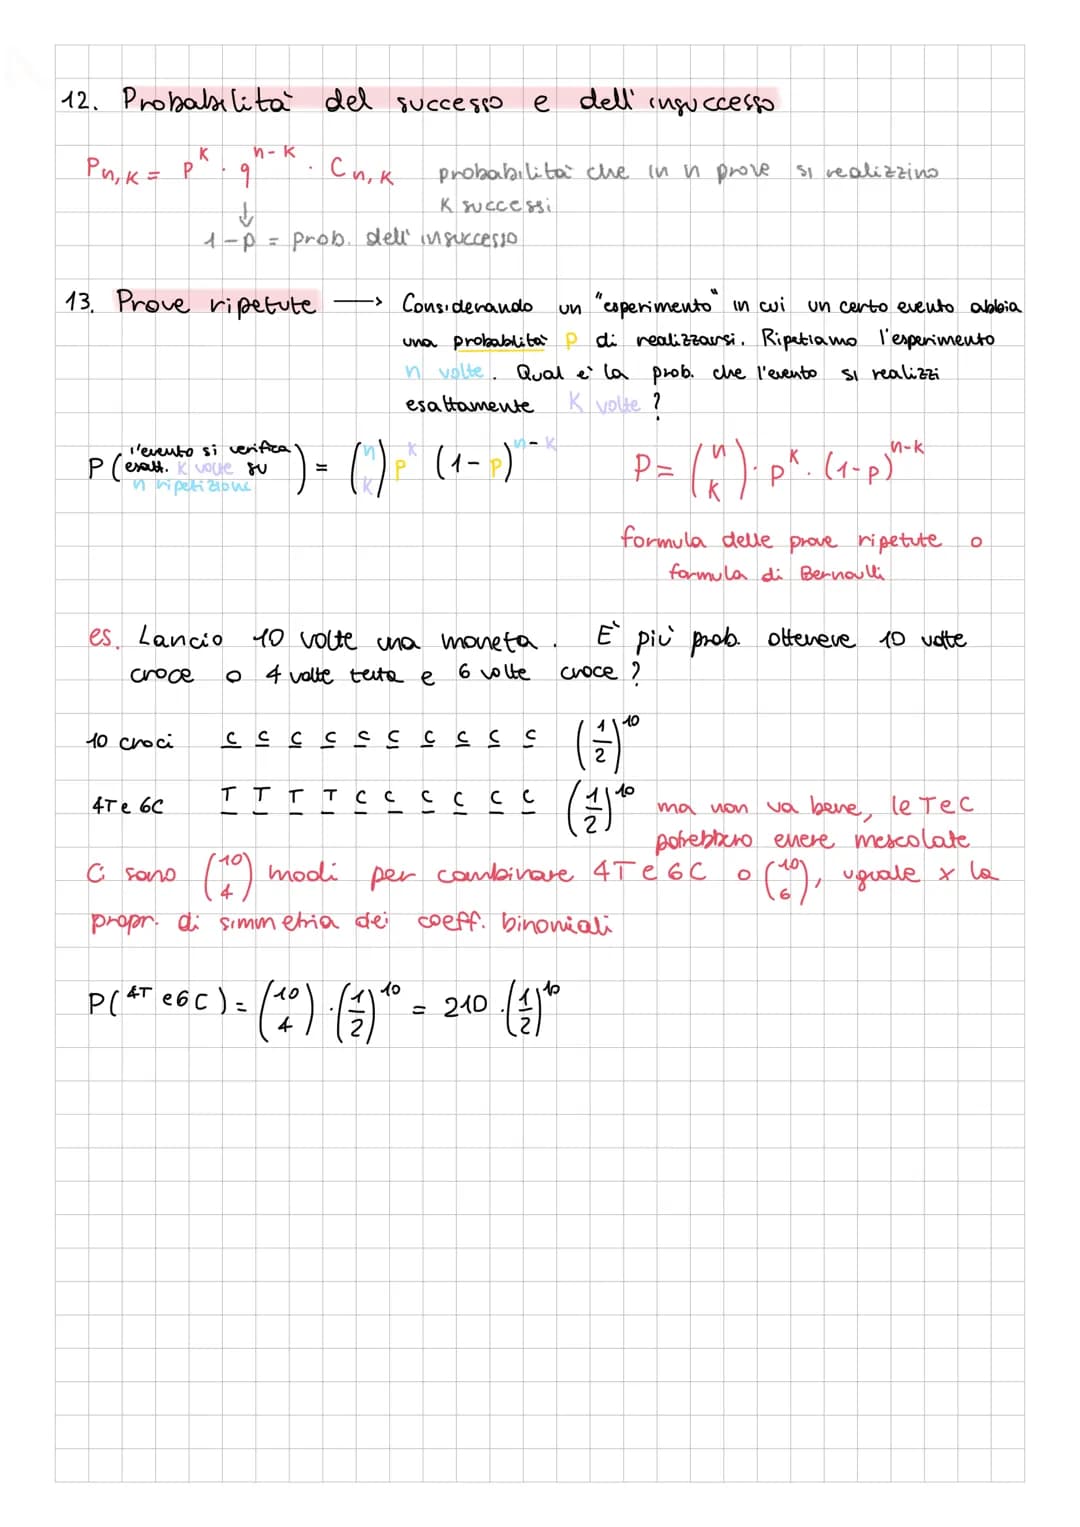 12. Probabilità del successo e dell'insuccesso
Pn,k = p^k · q^n-k · Cn,k probabilità che in n prove si realizzino
K successi
↓
1-p = prob. dell'insuccesso
13. Prove ripetute → Considerando un "esperimento" in cui un certo evento abbia
una probabilità p di realizzarsi. Ripetiamo l'esperimento
n volte. Qual è la prob. che l'evento si realizzi
esattamente K volte?
P(l'evento si verifica esatt. K volte su n ripetizioni) = (n K) p^K (1-p)^n-K P = (n K) · p^K · (1-p)^n-K
formula delle prove ripetute o
formula di Bernoulli
es. Lancio 10 volte una moneta. È più prob. ottenere 10 volte
croce o 4 volte testa e 6 volte croce?
10 croci C C C C C C C C C C (1/2)^10
4T e 6C T T T T C C C C C C (1/2)^10 ma non va bene, le T e C
potrebbero essere mescolate
Ci sono (10 4) modi per combinare 4T e 6C o (10 6), uguale x la
propr. di simmetria dei coeff. binomiali
P(4T e 6C) = (10 4) · (1/2)^10 = 210 · (1/2)^10